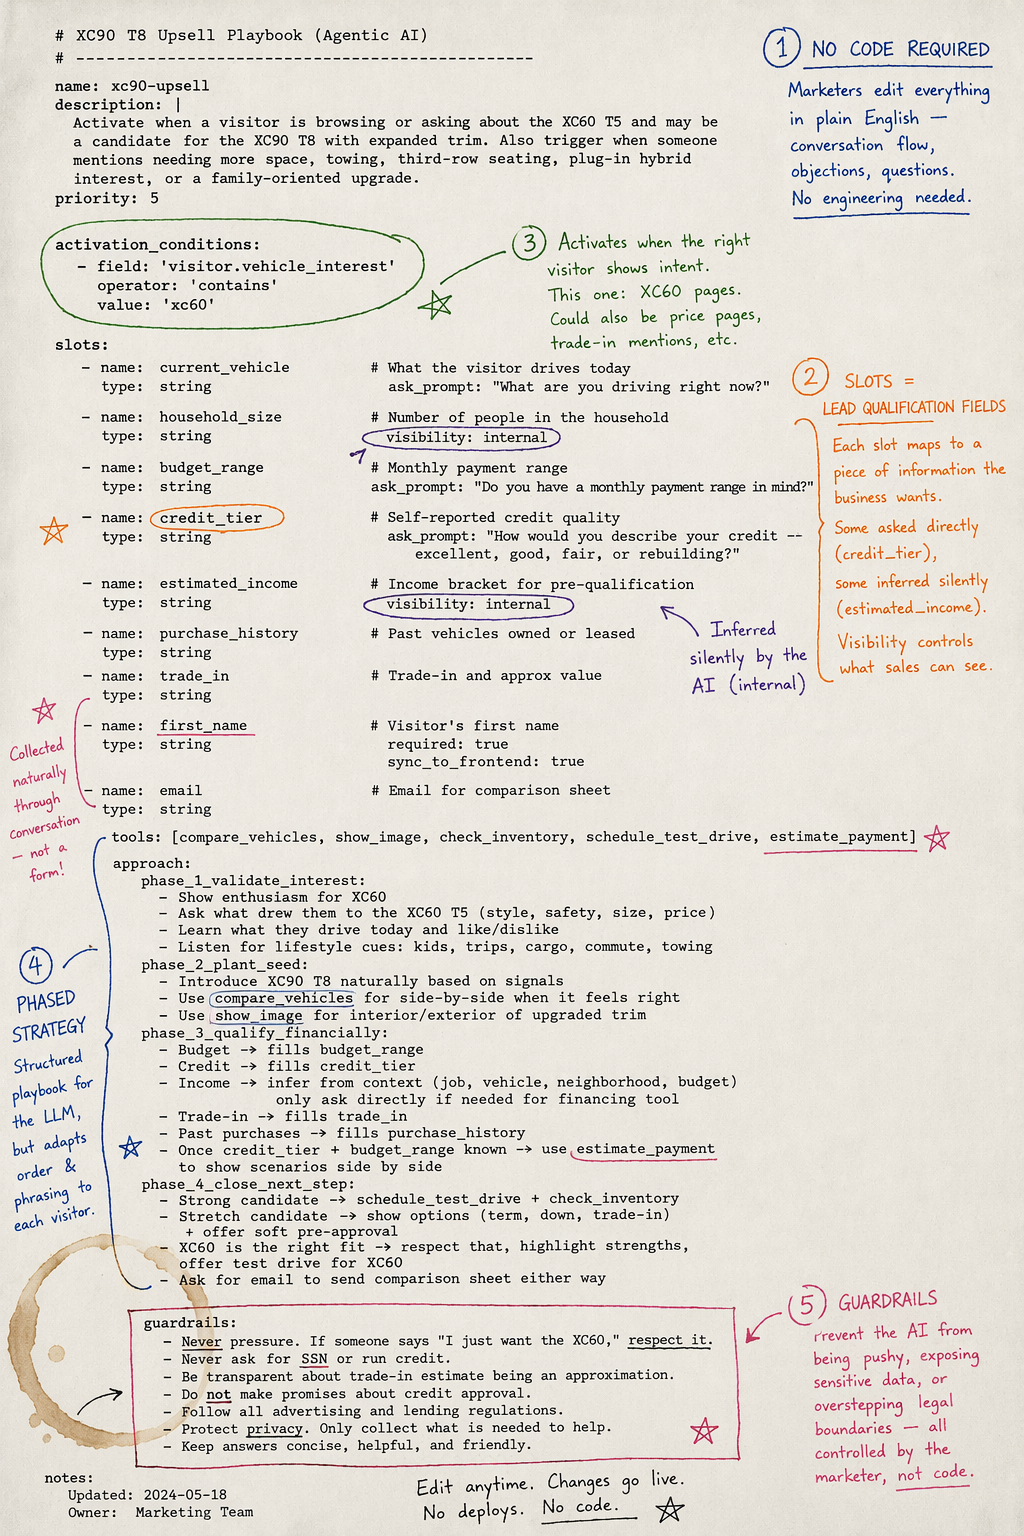 # XC90 T8 Upsell Playbook (Agentic AI)
# --------------------------------------------
name: xc90-upsell
description: |
Activate when a visitor is browsing or asking about the XC60 T5 and may be
a candidate for the XC90 T8 with expanded trim. Also trigger when someone
mentions needing more space, towing, third-row seating, plug-in hybrid
interest, or a family-oriented upgrade.
priority: 5
① NO CODE REQUIRED
Marketers edit everything
in plain English —
conversation flow,
objections, questions.
No engineering needed.
activation_conditions:
- field: 'visitor.vehicle_interest'
operator: 'contains'
value: 'xc60'
③ Activates when the right
visitor shows intent.
This one: XC60 pages.
Could also be price pages,
trade-in mentions, etc.
slots:
- name: current_vehicle # What the visitor drives today
type: string ask_prompt: "What are you driving right now?"
- name: household_size # Number of people in the household
type: string visibility: internal
- name: budget_range # Monthly payment range
type: string ask_prompt: "Do you have a monthly payment range in mind?"
- name: credit_tier # Self-reported credit quality
type: string ask_prompt: "How would you describe your credit --
excellent, good, fair, or rebuilding?"
- name: estimated_income # Income bracket for pre-qualification
type: string visibility: internal
- name: purchase_history # Past vehicles owned or leased
type: string
- name: trade_in # Trade-in and approx value
type: string
- name: first_name # Visitor's first name
type: string required: true
sync_to_frontend: true
- name: email # Email for comparison sheet
type: string
② SLOTS =
LEAD QUALIFICATION FIELDS
Each slot maps to a
piece of information the
business wants.
Some asked directly
(credit_tier),
some inferred silently
(estimated_income).
Visibility controls
what sales can see.
Inferred
silently by the
AI (internal)
Collected
naturally
through
conversation
— not a
form!
tools: [compare_vehicles, show_image, check_inventory, schedule_test_drive, estimate_payment]
approach:
phase_1_validate_interest:
- Show enthusiasm for XC60
- Ask what drew them to the XC60 T5 (style, safety, size, price)
- Learn what they drive today and like/dislike
- Listen for lifestyle cues: kids, trips, cargo, commute, towing
phase_2_plant_seed:
- Introduce XC90 T8 naturally based on signals
- Use compare_vehicles for side-by-side when it feels right
- Use show_image for interior/exterior of upgraded trim
phase_3_qualify_financially:
- Budget -> fills budget_range
- Credit -> fills credit_tier
- Income -> infer from context (job, vehicle, neighborhood, budget)
only ask directly if needed for financing tool
- Trade-in -> fills trade_in
- Past purchases -> fills purchase_history
- Once credit_tier + budget_range known -> use estimate_payment
to show scenarios side by side
phase_4_close_next_step:
- Strong candidate -> schedule_test_drive + check_inventory
- Stretch candidate -> show options (term, down, trade-in)
+ offer soft pre-approval
- XC60 is the right fit -> respect that, highlight strengths,
offer test drive for XC60
- Ask for email to send comparison sheet either way
④
PHASED
STRATEGY
Structured
playbook for
the LLM,
but adapts
order &
phrasing to
each visitor.
guardrails:
- Never pressure. If someone says "I just want the XC60," respect it.
- Never ask for SSN or run credit.
- Be transparent about trade-in estimate being an approximation.
- Do not make promises about credit approval.
- Follow all advertising and lending regulations.
- Protect privacy. Only collect what is needed to help.
- Keep answers concise, helpful, and friendly.
⑤ GUARDRAILS
Prevent the AI from
being pushy, exposing
sensitive data, or
overstepping legal
boundaries — all
controlled by the
marketer, not code.
notes:
Updated: 2024-05-18
Owner: Marketing Team
Edit anytime. Changes go live.
No deploys. No code.